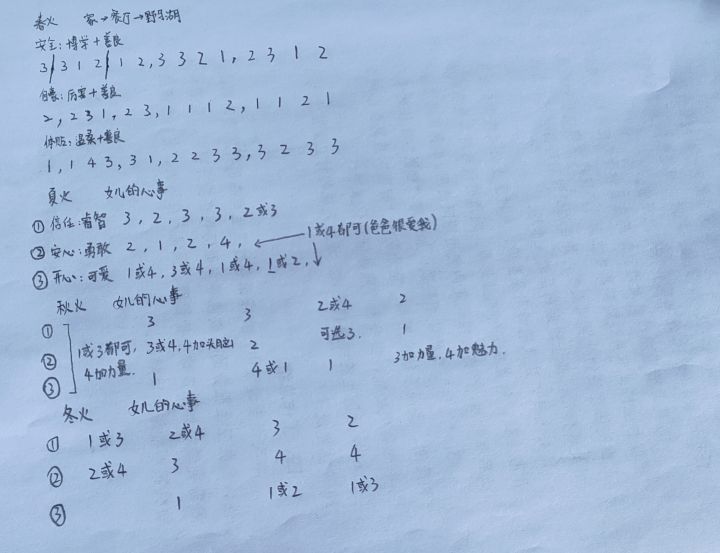 春火 家→客厅→野马湖
安全:博学+善良
3/3 1 2/1 2,3 3 2 1,2 3 1 2
包容:厉害+善良
2,2 3 1,2 3,1 1 1 2,1 1 2 1
体贴:温柔+善良
1,1 4 3,3 1,2 2 3 3,3 2 3 3
夏火 女儿的心事
① 信任:睿智 3,2,3,3,2或3
② 安心:勇敢 2,1,2,4,← 1或4都可(爸爸很爱我)
③ 开心:可爱 1或4,3或4,1或4,1或2,↓
秋火 女儿的心事
① 3 3 2或4 2
② 1或3都可,3或4,4加头脑 2 可选3. 1
③ 4加力量. 1 4或1 1 3加力量.4加魅力.
冬火 女儿的心事
① 1或3 2或4 3 2
② 2或4 3 4 4
③ 1 1或2 1或3